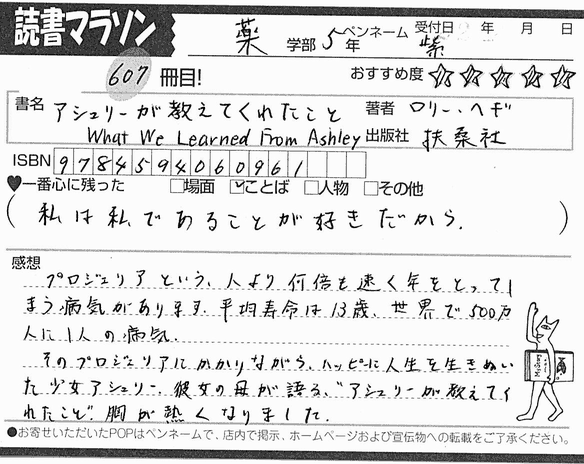 読書マラソン
薬 学部 5年 ペンネーム 紫 受付日 年 月 日
607 冊目! おすすめ度 ☆☆☆☆☆
書名 アシュリーが教えてくれたこと 著者 ロリー、ヘギ
What We Learned From Ashley 出版社 扶桑社
ISBN 9784594060961
♥一番心に残った □場面 ☑ことば □人物 □その他
(私は私であることが好きだから.)
感想
プロジェリアという、人より何倍も速く年をとってし
まう病気があります.平均寿命は13歳、世界で500万
人に1人の病気.
そのプロジェリアにかかりながら、ハッピーに人生を生きぬい
た少女アシュリー、彼女の母が語る、"アシュリーが教えてく
れたこと".胸が熱くなりました.
●お寄せいただいたPOPはペンネームで、店内で掲示、ホームページおよび宣伝物への転載をご了承ください。